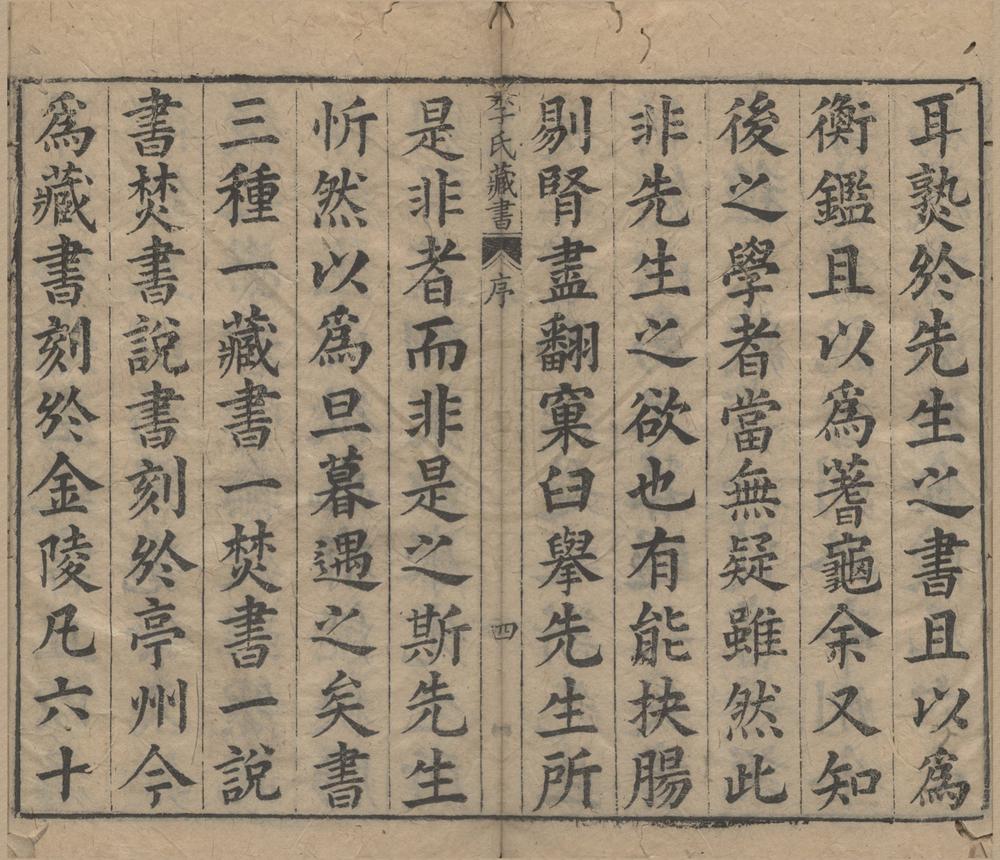 耳熟於先生之書且以爲
衡鑑且以爲蓍龜余又知
後之學者當無疑雖然此
非先生之欲也有能抉腸
剔腎盡翻窠臼擧先生所
李氏藏書 序 四
是非者而非是之斯先生
忻然以爲旦暮遇之矣書
三種一藏書一焚書一說
書焚書說書刻於亭州今
爲藏書刻於金陵凡六十